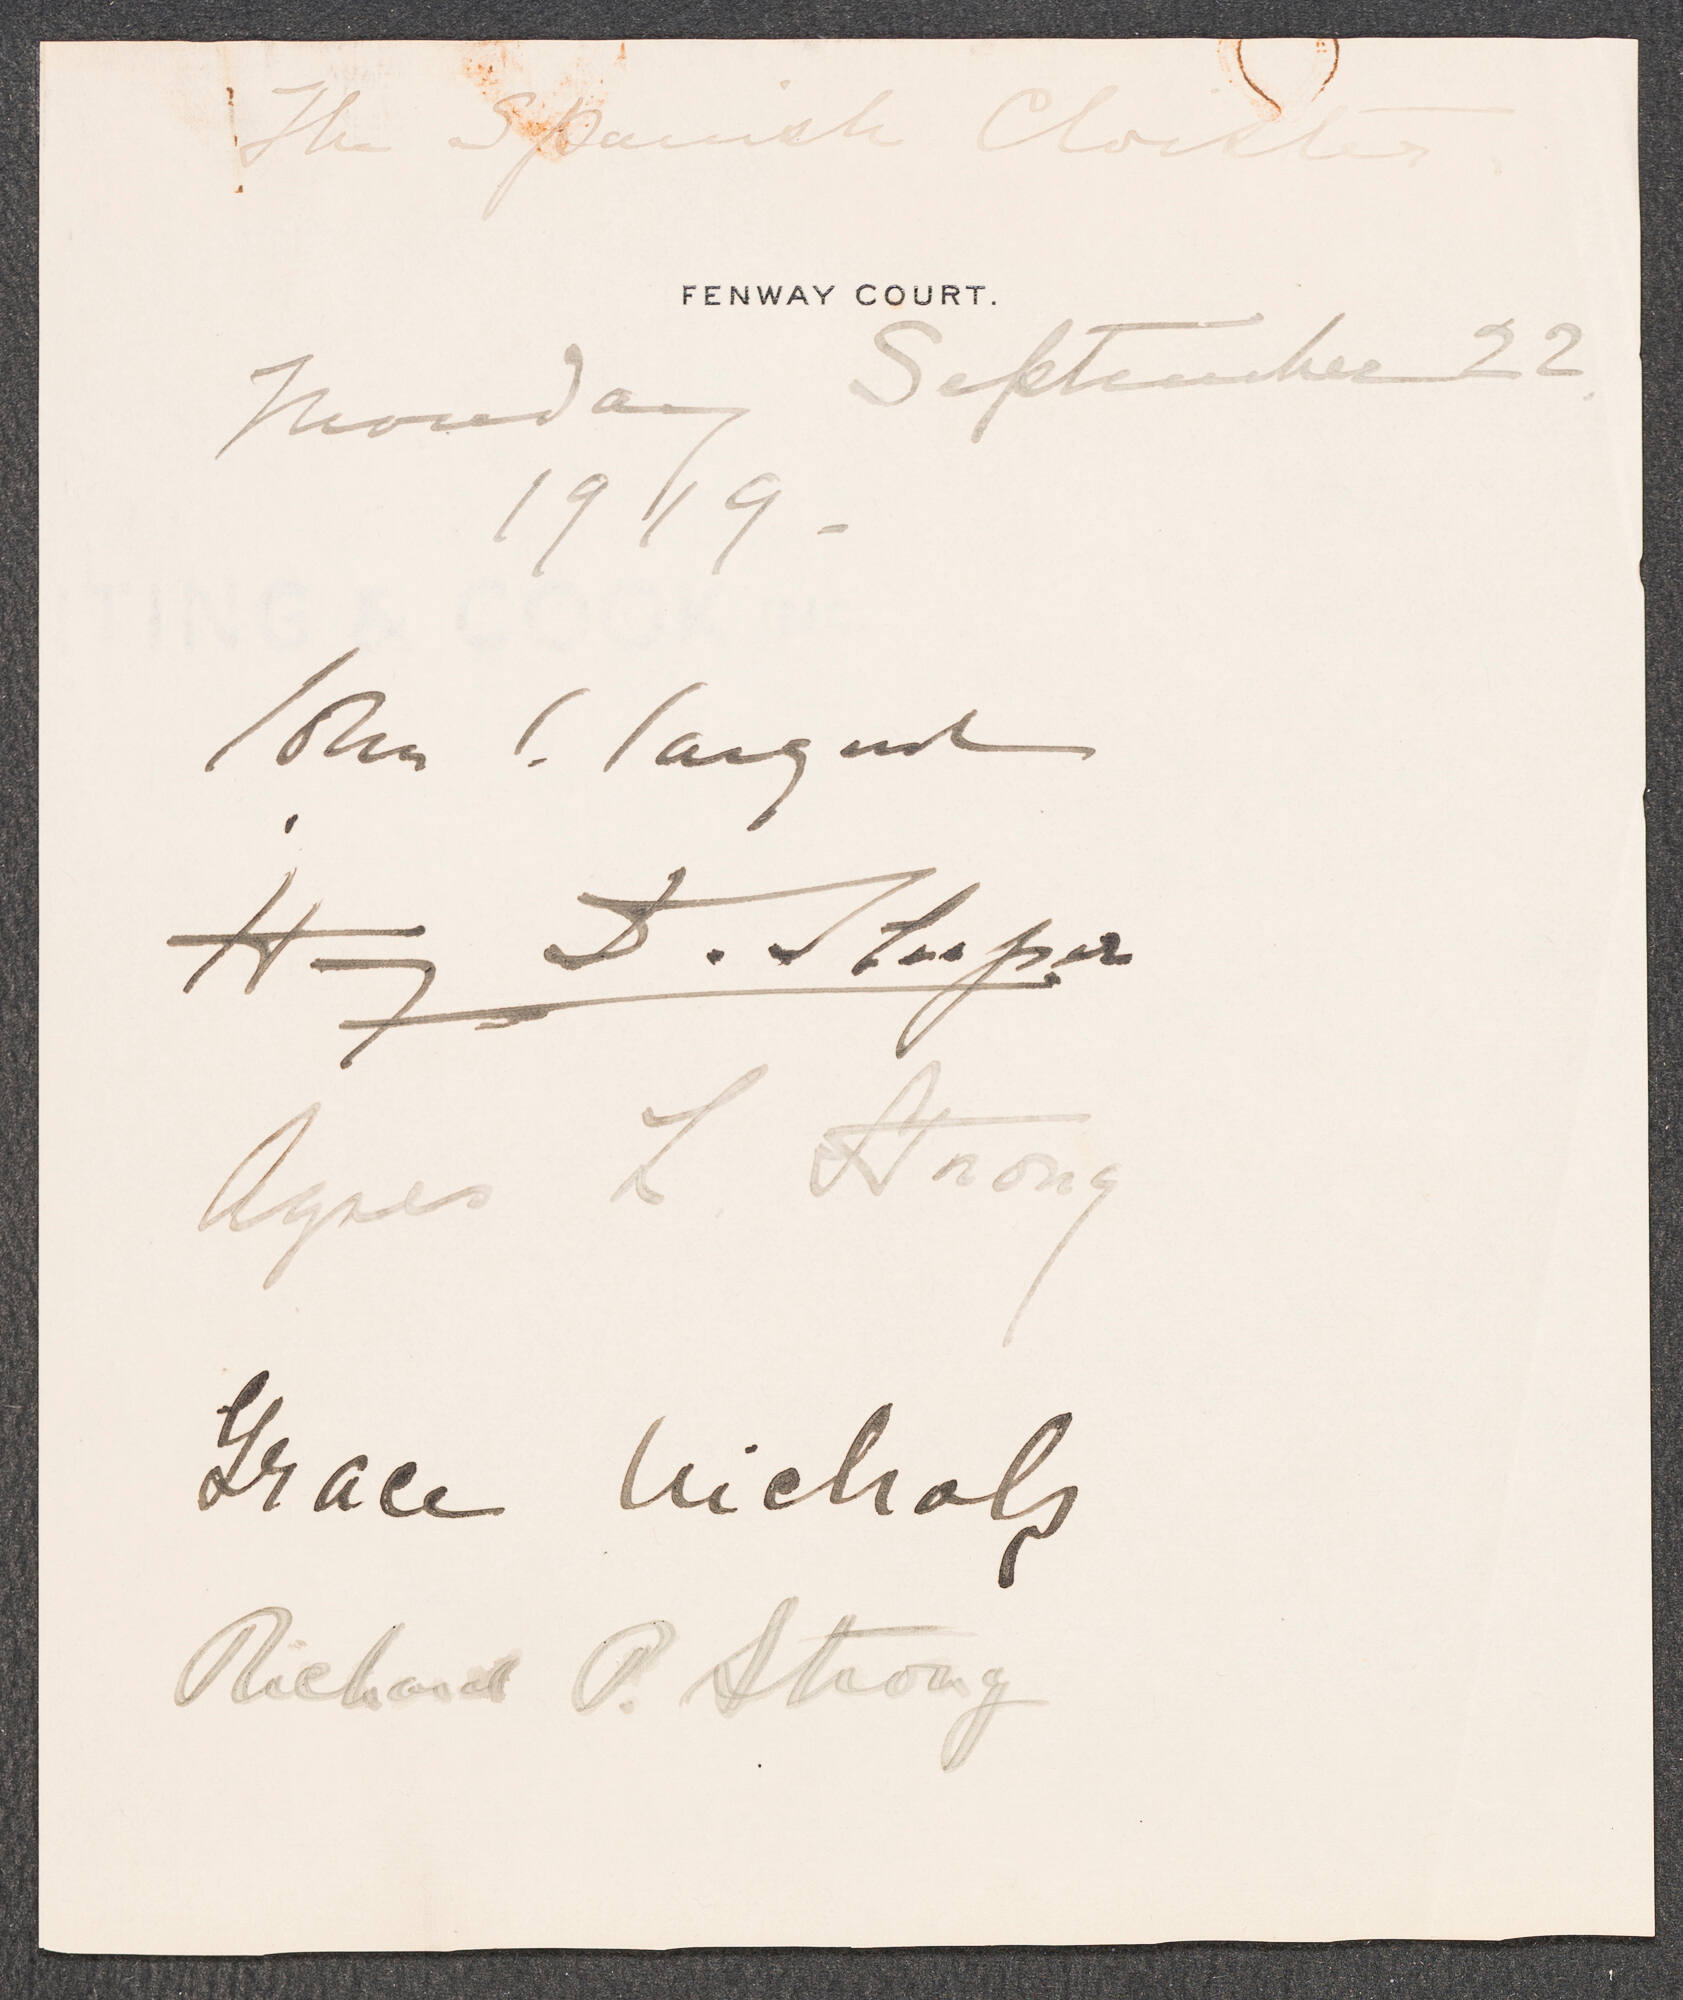 The Spanish Cloister.
FENWAY COURT.
Monday September 22.
1919 -
TING & COOK INC
John S. Sargent
Harry D. Sleeper
Agnes L Strong
Grace Nichols
Richard P. Strong